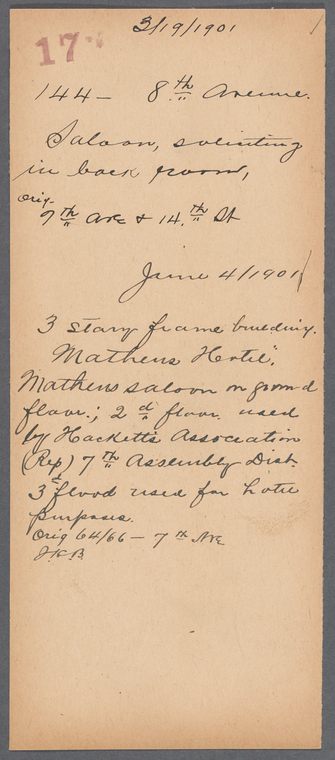 3/19/1901
17
144 - 8th Avenue.
Saloon, soliciting
in back room,
Orig-
7th Ave & 14th St
June 4/1901
3 story frame building.
"Mathens Hotel".
Mathens saloon on ground
floor.; 2d floor used
by Hacketts Association
(Rep) 7th Assembly Dist.
3d flood used for hotel
purposes.
Orig 64/66 - 7th Ave
J.K.B.